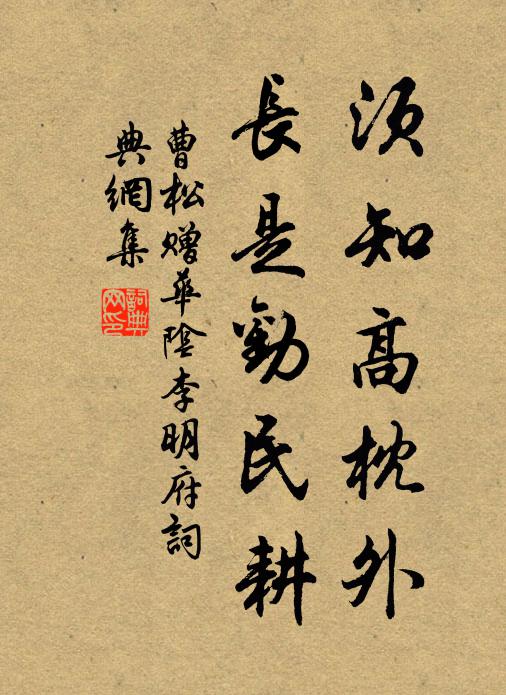 須知高枕外
長是勸民耕
曹松贈華陰李明府詞
典網集
詞典
网印